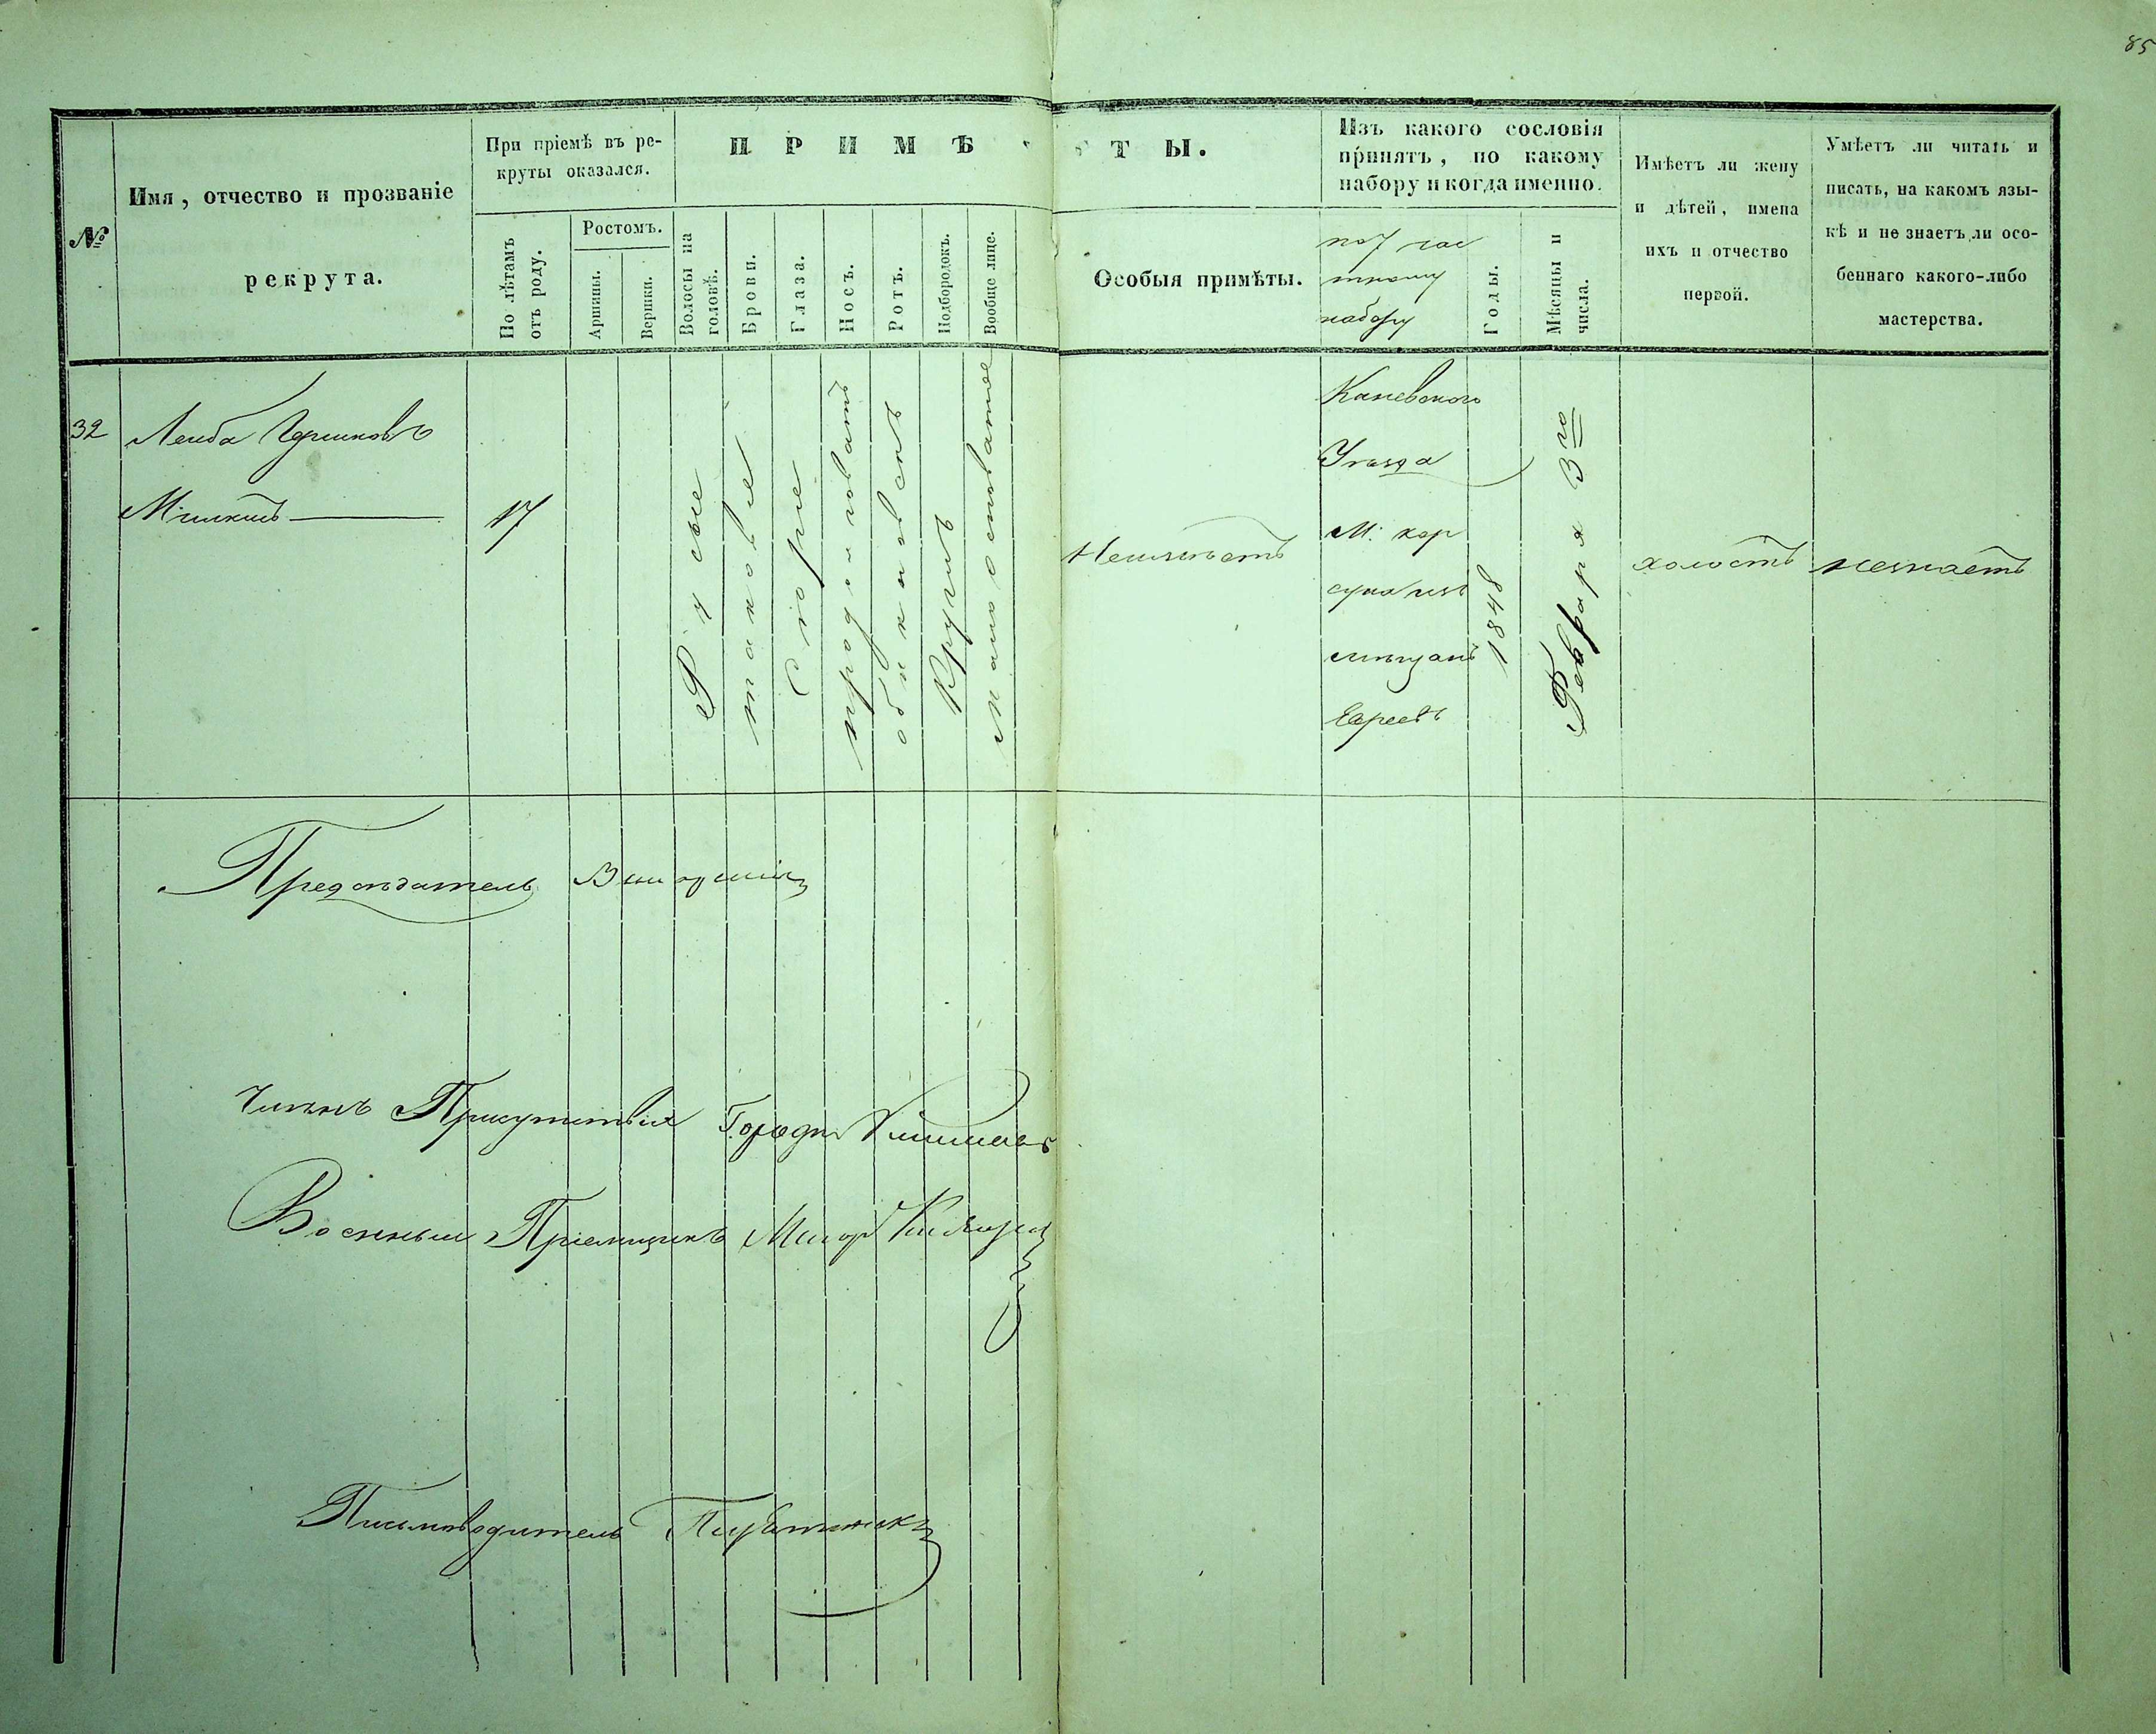 85
№
Имя, отчество и прозваніе
рекрута.
При пріемѣ въ ре-
круты оказался.
По лѣтамъ
отъ роду.
Ростомъ.
Аршины.
Вершки.
ПРИМѢТЫ.
Волосы на
головѣ.
Брови.
Глаза.
Носъ.
Ротъ.
Подбородокъ.
Вообще лице.
Особыя примѣты.
Изъ какого сословія
принятъ, по какому
набору и когда именно.
по 7 час
тному
набору
Годы.
Мѣсяцы и
числа.
Имѣетъ ли жену
и дѣтей, имена
ихъ и отчество
первой.
Умѣетъ ли читать и
писать, на какомъ язы-
кѣ и не знаетъ ли осо-
беннаго какого-либо
мастерства.
32
Леиба Гершковъ
17
Русые
таковые
Сѣрые
продолговатъ
обикновенъ
Круглъ
Неимѣетъ
Каневского
Уѣзда
М: кор
суна изъ
мѣщанъ
Евреевъ
1848
Февраря 3го
холостъ
незнаетъ
Предсѣдатель
Членъ Присутствія
Военный Пріемщикъ Маіоръ
Письмоводитель